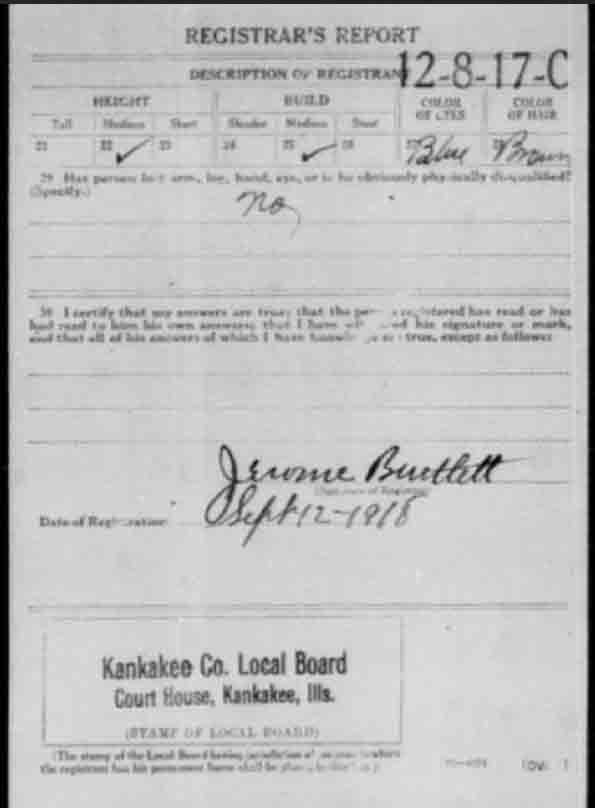 REGISTRAR'S REPORT
12-8-17-C
DESCRIPTION OF REGISTRANT
HEIGHT BUILD COLOR OF EYES COLOR OF HAIR
Tall Medium Short Slender Medium Stout
21 22 ✓ 23 24 25 ✓ 26 27 Blue 28 Brown
29 Has person lost arm, leg, hand, eye, or is he obviously physically disqualified?
(Specify.)
No
30 I certify that my answers are true; that the person registered has read or has
had read to him his own answers; that I have witnessed his signature or mark,
and that all of his answers of which I have knowledge are true, except as follows:
Jerome Burtlett
(Signature of Registrar)
Date of Registration Sept 12-1918
Kankakee Co. Local Board
Court House, Kankakee, Ills.
(STAMP OF LOCAL BOARD)
(The stamp of the Local Board having jurisdiction of the area in which
the registrant has his permanent home shall be placed in this box.)